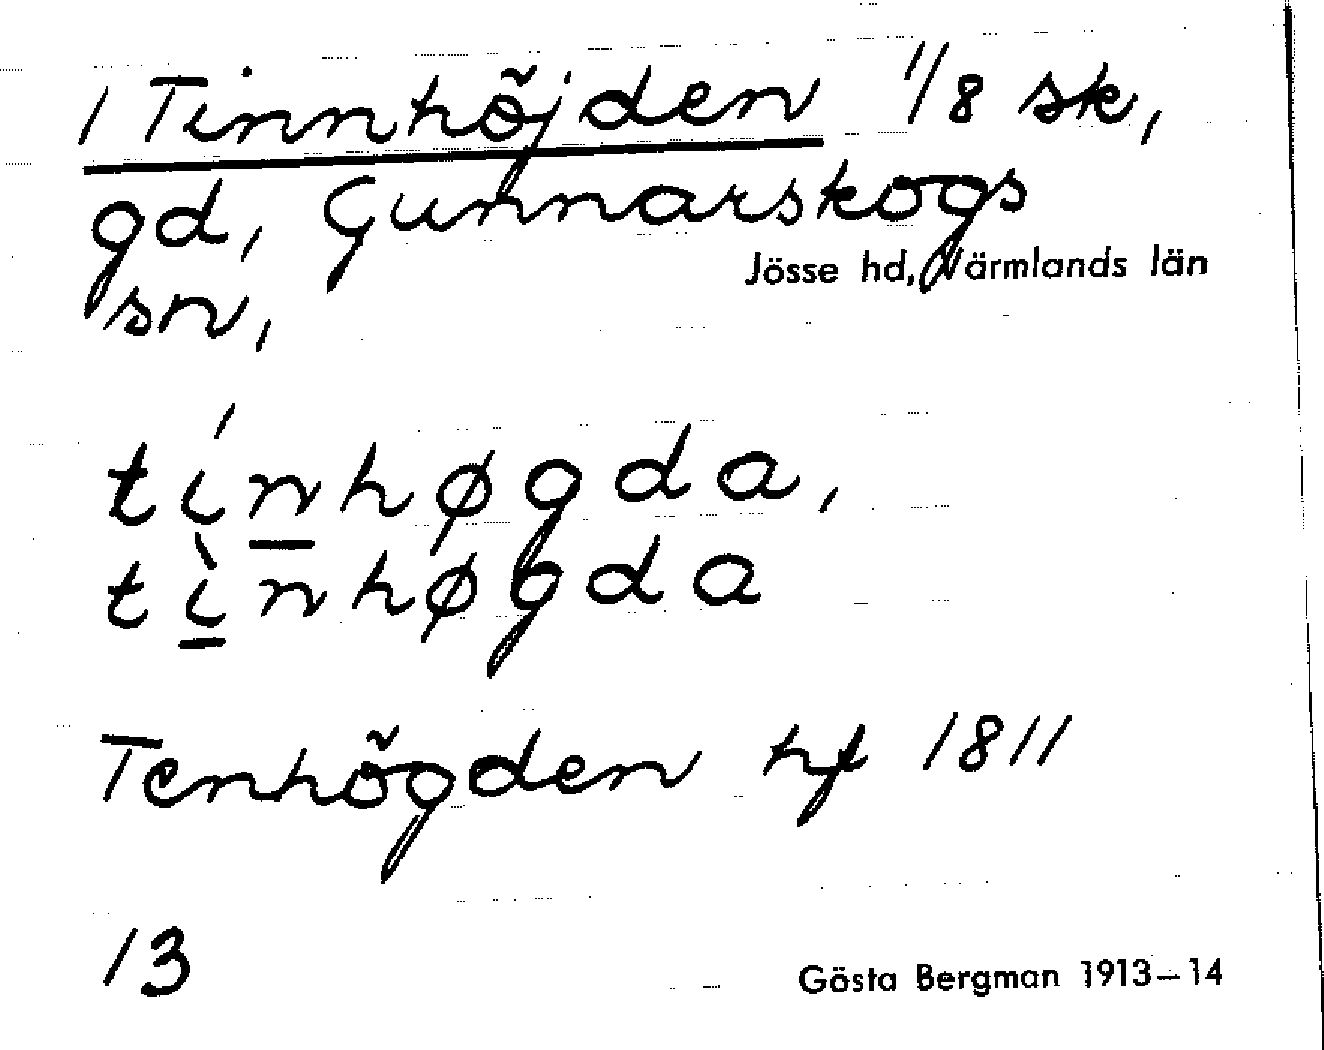 1 Tinnhöjden 1/8 sk,
gd, Gunnarskogs
Jösse hd, Värmlands län
sn,
tínhøgda,
tìnhøgda
Tenhögden hf 1811
13
Gösta Bergman 1913–14